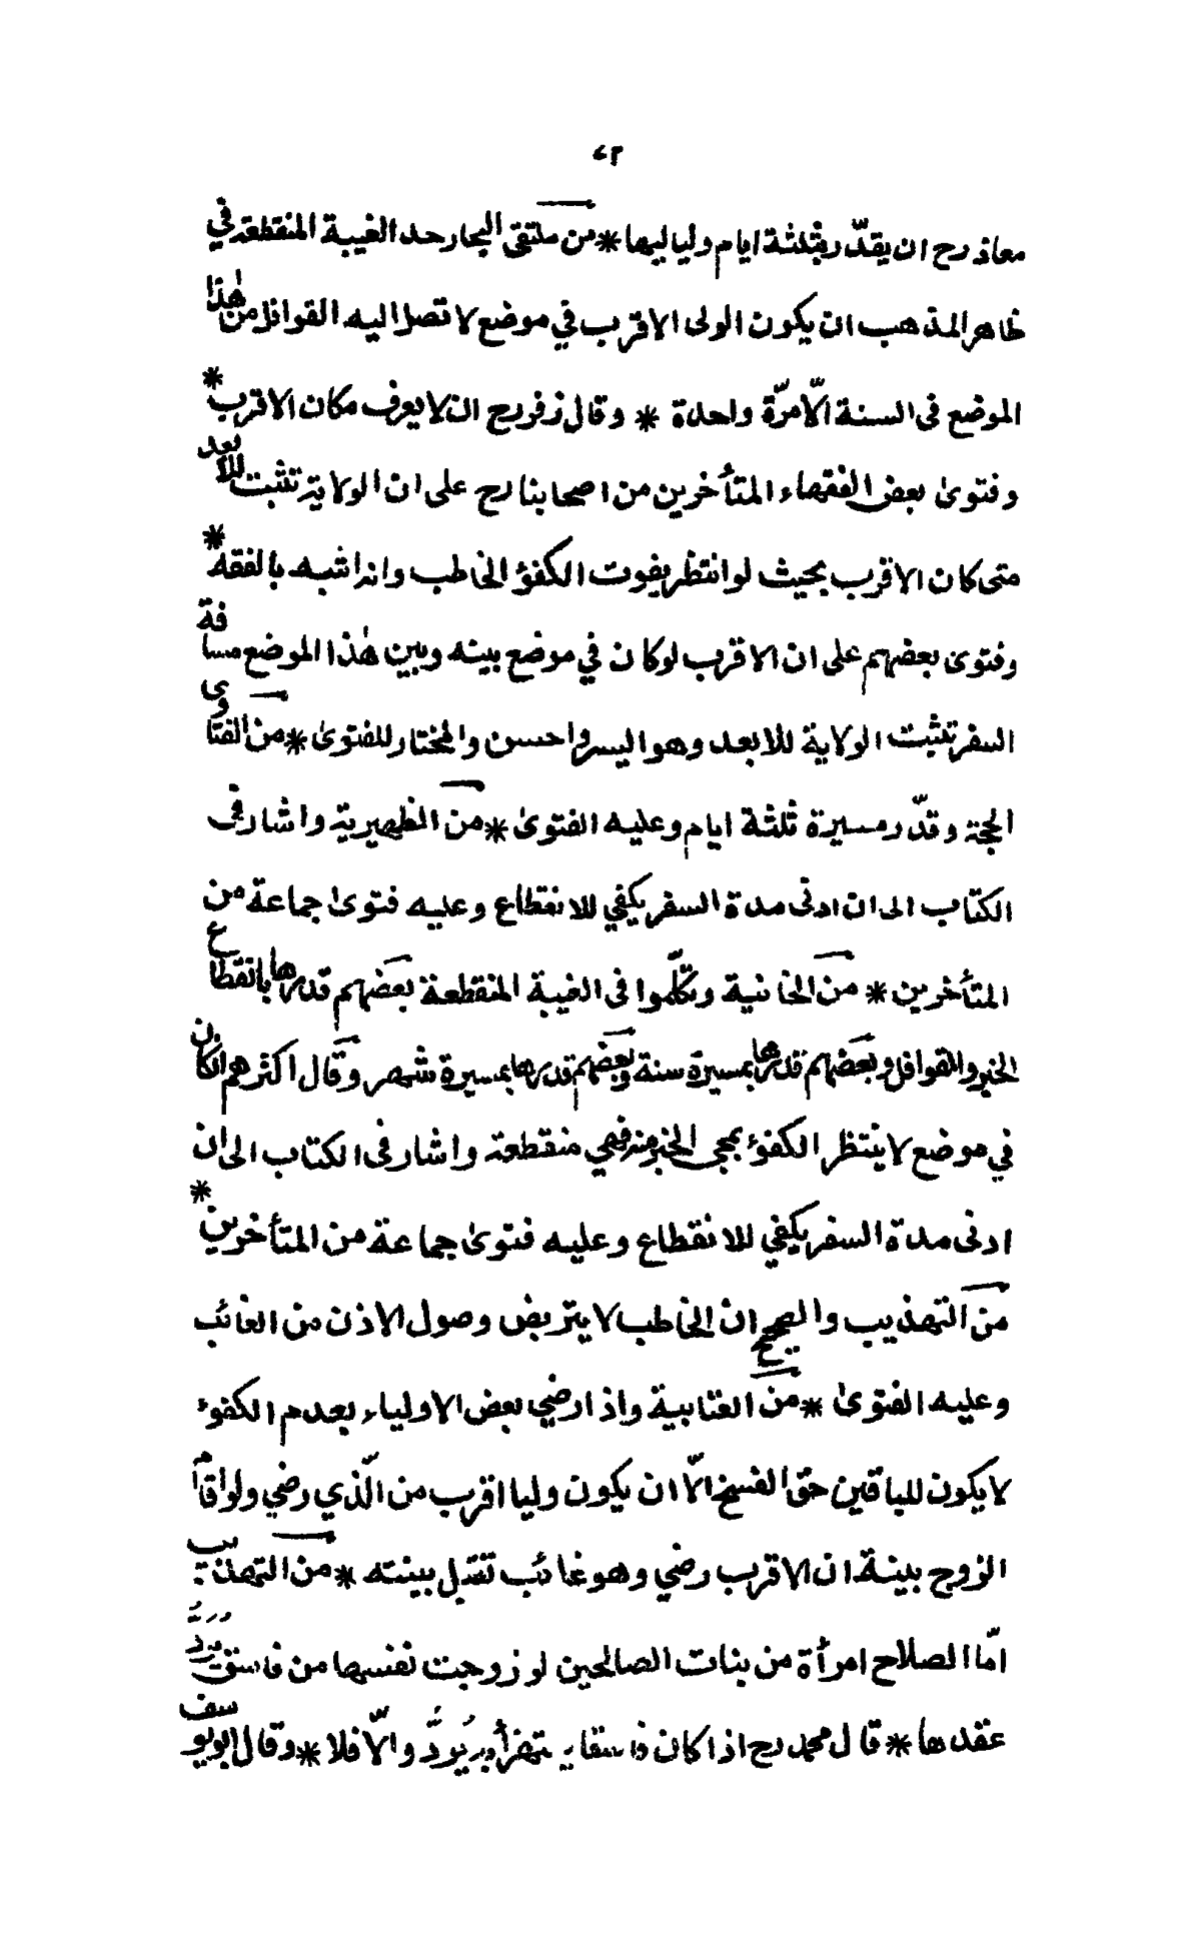 ٤٢
معاذ رح ان يقدّر بثلثة ايام ولياليها * من ملتقى البحار حد الغيبة المنقطعة في
ظاهر المذهب ان يكون الولى الاقرب في موضع لا تصل اليه القوافل من هٰذا
الموضع فى السنة الّا مرّة واحدة * وقال زفر رح ان لا يعرف مكان الاقرب *
وفتوىٰ بعض الفقهاء المتأخرين من اصحابنا رح على ان الولاية تثبت للابعد
متى كان الاقرب بحيث لو انتظر يفوت الكفؤ الخاطب وانه اشبه بالفقه *
وفتوى بعضهم على ان الاقرب لو كان في موضع بينه وبين هٰذا الموضع مسافة
السفر تثبت الولاية للابعد وهو اليسر واحسن والمختار للفتوىٰ * من الفتاوى
الحجة وقدّر مسيرة ثلثة ايام وعليه الفتوىٰ * من الظهيرية واشار فى
الكتاب الى ان ادنى مدة السفر يكفي للانقطاع وعليه فتوىٰ جماعة من
المتأخرين * من الخانية وتكلّموا فى الغيبة المنقطعة بعضهم قدرها بانقطاع
الخبر والقوافل وبعضهم قدرها بمسيرة سنة وبعضهم قدرها بمسيرة شهر وقال اكثرهم ان كان
في موضع لا ينتظر الكفؤ بمجى الخبر منه فهي منقطعة واشار فى الكتاب الى ان
ادنى مدة السفر يكفي للانقطاع وعليه فتوىٰ جماعة من المتأخرين *
من التهذيب والصحيح ان الخاطب لا يتربض وصول الاذن من الغائب
وعليه الفتوىٰ * من العتابية واذا رضي بعض الاولياء بعدم الكفوء
لا يكون للباقين حق الفسخ الّا ان يكون وليا اقرب من الّذي رضي ولو اقام
الزوج ببينة ان الاقرب رضي وهو غائب تقبل بينته * من التهذيب
امّا الصلاح امرأة من بنات الصالحين لو زوجت نفسها من فاسق يُرَدُّ
عقدها * قال محمد رح اذا كان فاسقا يتهزأ به يُرَدُّ والّا فلا * وقال ابو يوسف